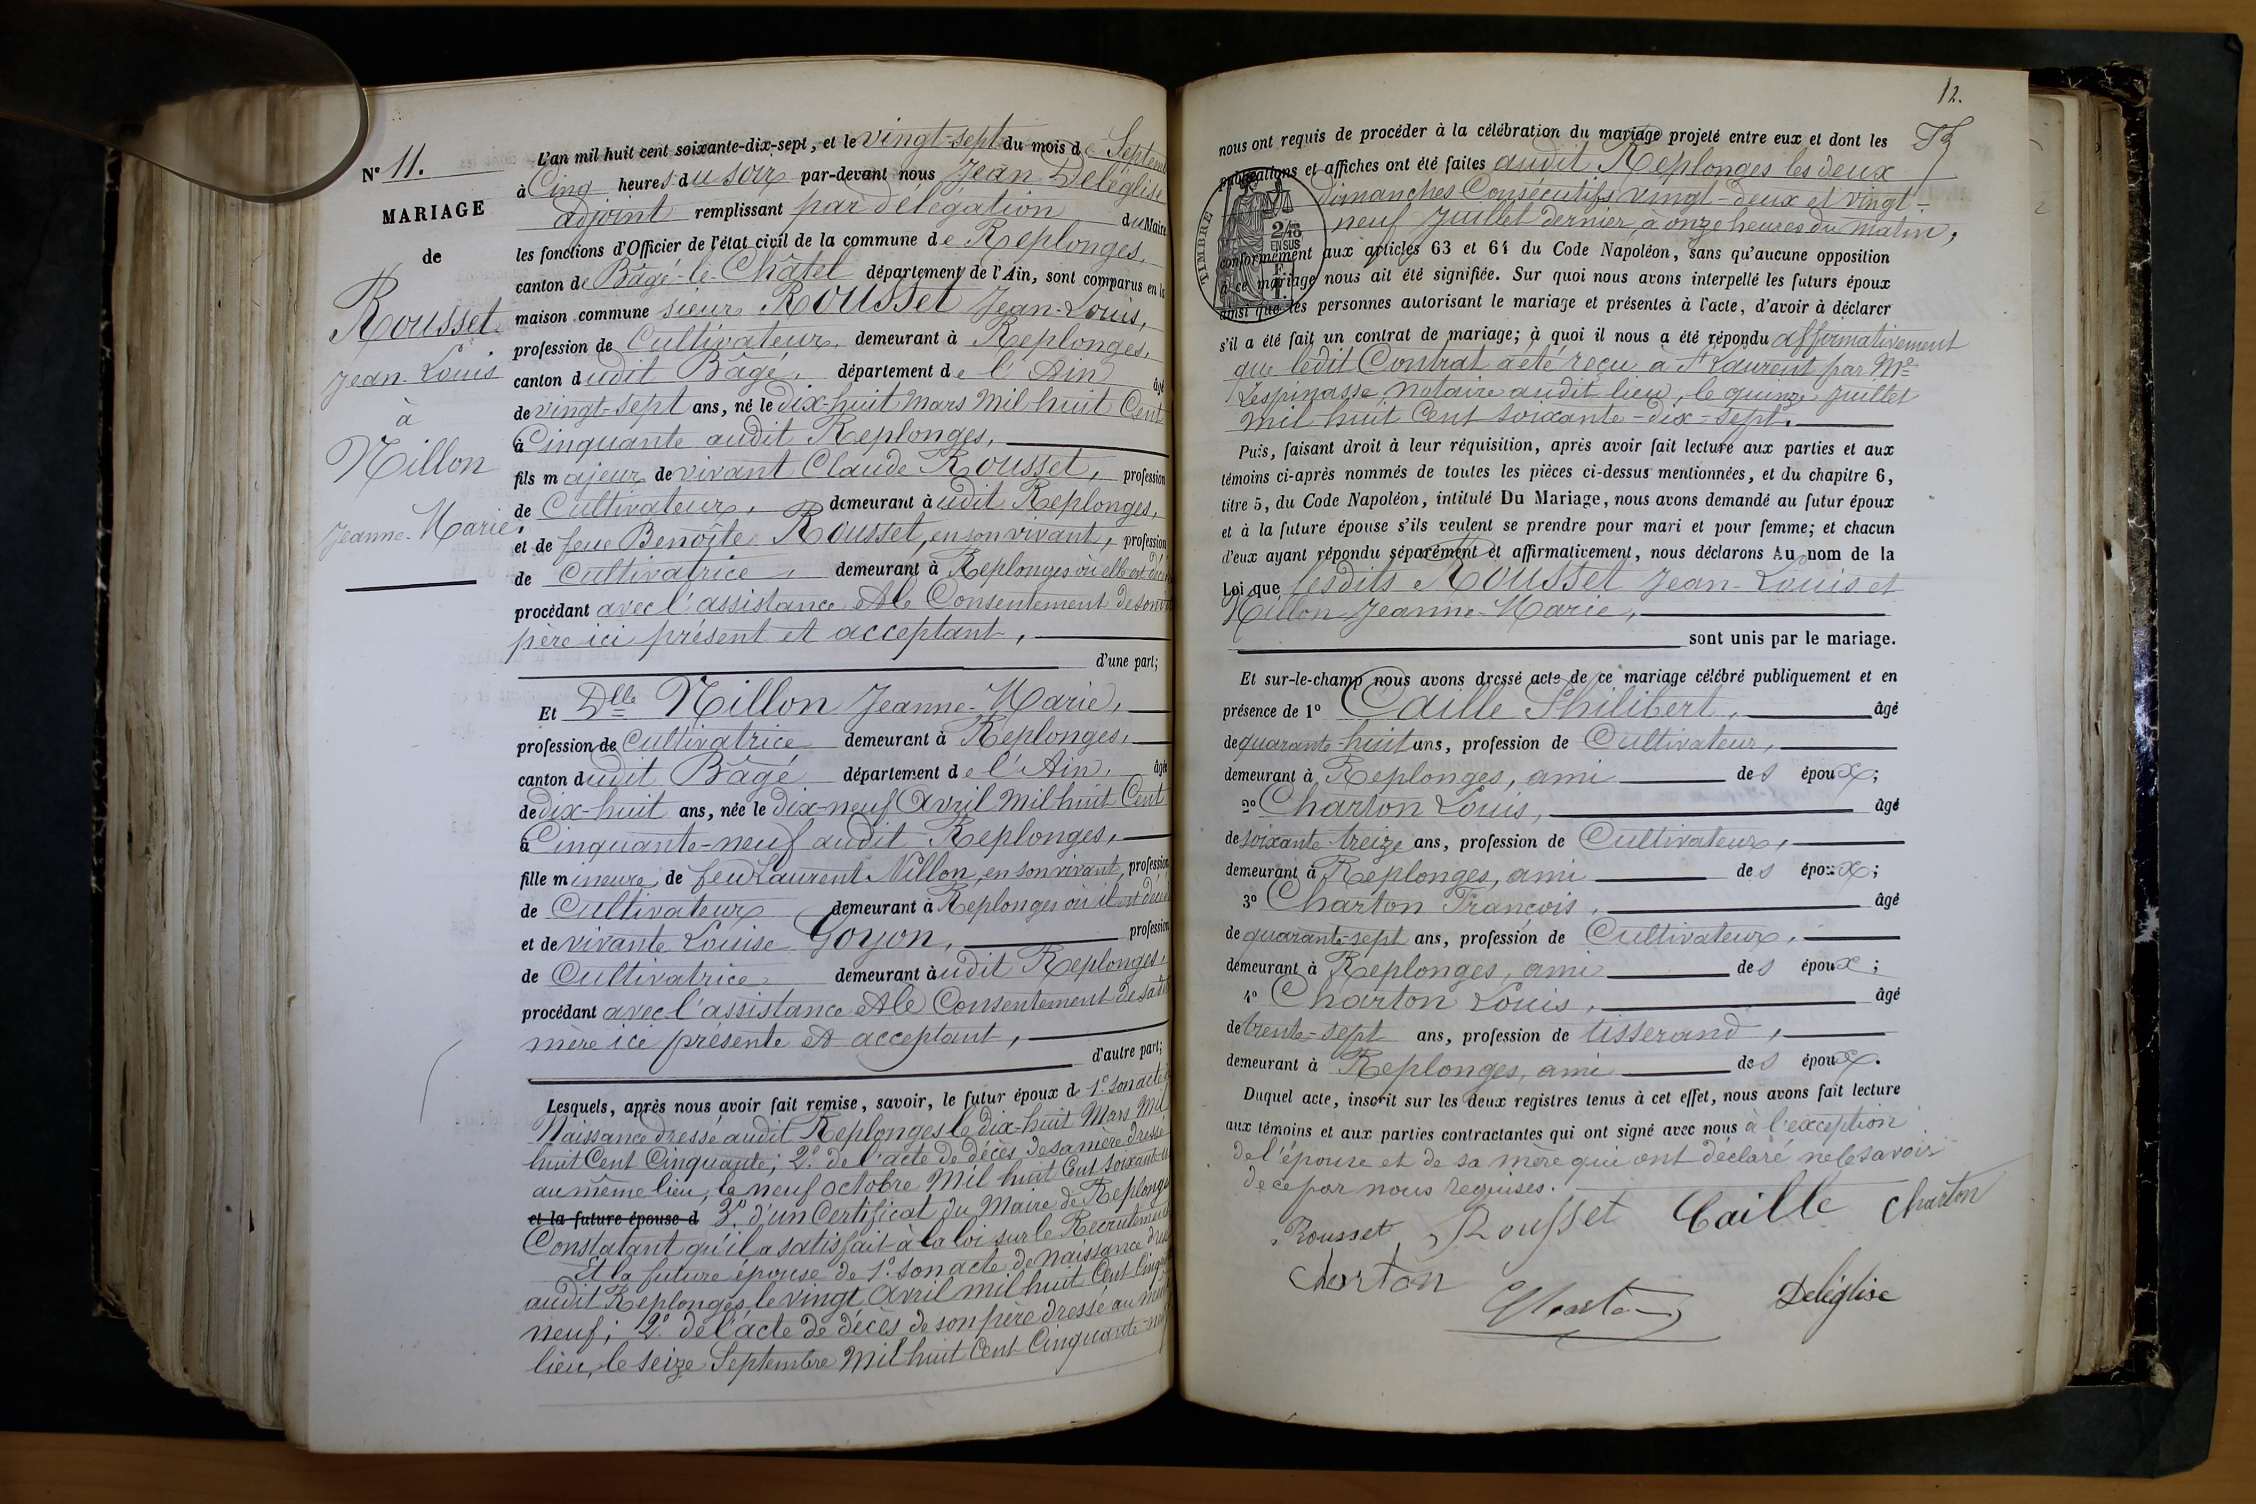 N° 11.
MARIAGE
de
Rousset
Jean-Louis
à
Nillon
Jeanne-Marie.
L'an mil huit cent soixante-dix-sept, et le vingt-sept du mois de Septem
à Cinq heures du soir par-devant nous Jean Deléglise
adjoint remplissant par délégation du Maire
les fonctions d'Officier de l'état civil de la commune de Replonges,
canton de Bâgé-le-Châtel département de l'Ain, sont comparus en la
maison commune sieur Rousset Jean-Louis,
profession de Cultivateur, demeurant à Replonges,
canton dudit Bâgé, département de l'Ain âgé
de vingt-sept ans, né le dix-huit Mars Mil huit Cent
à Cinquante audit Replonges,
fils majeur de vivant Claude Rousset, profession
de Cultivateur, demeurant àudit Replonges,
et de feue Benoîte Rousset, en son vivant, profession
de Cultivatrice, demeurant à Replonges où elle est
procédant avec l'assistance et le Consentement de son
père ici présent et acceptant,
d'une part;
Et Dlle Nillon Jeanne-Marie,
profession de Cultivatrice demeurant à Replonges,
canton dudit Bâgé département de l'Ain, âgée
de dix-huit ans, née le dix-neuf Avril Mil huit Cent
à Cinquante-neuf audit Replonges,
fille mineure de feu Laurent Nillon, en son vivant, profession
de Cultivateur demeurant à Replonges où il est
et de vivante Louise Goyon, profession
de Cultivatrice demeurant àudit Replonges,
procédant avec l'assistance et le Consentement de sa
mère ici présente et acceptant,
d'autre part;
Lesquels, après nous avoir fait remise, savoir, le futur époux d 1° son acte
Naissance dressé audit Replonges le dix-huit Mars Mil
huit Cent Cinquante; 2° de l'acte de décès de sa mère dressé
au même lieu, le neuf octobre Mil huit Cent soixante
et la future épouse d 3° d'un Certificat du Maire de Replonges
Constatant qu'il a satisfait à la loi sur le Recrutement
Et la future épouse de 1° son acte de naissance
audit Replonges le vingt Avril mil huit Cent Cinq
neuf; 2° de l'acte de décès de son père dressé au
lieu, le seize Septembre Mil huit Cent Cinquante
12.
nous ont requis de procéder à la célébration du mariage projeté entre eux et dont les
publications et affiches ont été faites audit Replonges les deux
dimanches Consécutifs vingt-deux et vingt-
neuf Juillet dernier, à onze heures du matin,
conformément aux articles 63 et 64 du Code Napoléon, sans qu'aucune opposition
à ce mariage nous ait été signifiée. Sur quoi nous avons interpellé les futurs époux
ainsi que les personnes autorisant le mariage et présentes à l'acte, d'avoir à déclarer
s'il a été fait un contrat de mariage; à quoi il nous a été répondu affirmativement
que ledit Contrat a été reçu à St Laurent par Me
Lespinasse, Notaire audit lieu, le quinze Juillet
mil huit Cent soixante-dix-sept.
TIMBRE
2/10
EN SUS
Puis, faisant droit à leur réquisition, après avoir fait lecture aux parties et aux
témoins ci-après nommés de toutes les pièces ci-dessus mentionnées, et du chapitre 6,
titre 5, du Code Napoléon, intitulé Du Mariage, nous avons demandé au futur époux
et à la future épouse s'ils veulent se prendre pour mari et pour femme; et chacun
d'eux ayant répondu séparément et affirmativement, nous déclarons Au nom de la
Loi que lesdits Rousset Jean-Louis et
Nillon Jeanne-Marie,
sont unis par le mariage.
Et sur-le-champ nous avons dressé acte de ce mariage célébré publiquement et en
présence de 1° Caille Philibert, âgé
de quarante-huit ans, profession de Cultivateur,
demeurant à Replonges, ami des époux;
2° Charton Louis, âgé
de soixante treize ans, profession de Cultivateur,
demeurant à Replonges, ami des époux;
3° Charton François, âgé
de quarante-sept ans, profession de Cultivateur,
demeurant à Replonges, ami des époux;
4° Charton Louis, âgé
de trente-sept ans, profession de tisserand,
demeurant à Replonges, ami des époux.
Duquel acte, inscrit sur les deux registres tenus à cet effet, nous avons fait lecture
aux témoins et aux parties contractantes qui ont signé avec nous à l'exception
de l'épouse et de sa mère qui ont déclaré ne le savoir
de ce par nous requises.
Rousset Rousset Caille Charton
Charton
Charton Deléglise